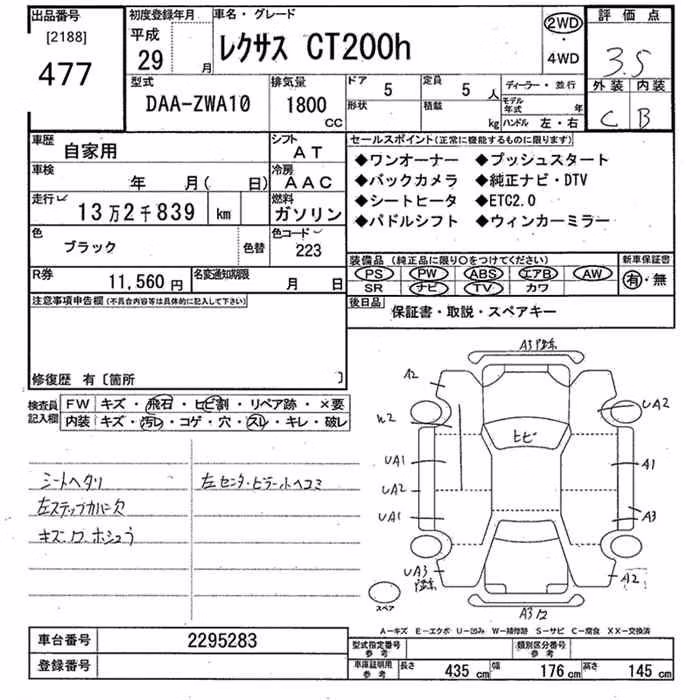 出品番号
[2188]
477
初度登録年月
平成
29 月
車名・グレード
レクサス CT200h
2WD
・
4WD
評価点
3.5
外装 内装
C B
型式
DAA-ZWA10
排気量
1800
CC
ドア 5
定員 5 人
形状
積載 kg
ディーラー・並行
モデル年式 年
ハンドル 左・右
車歴
自家用
シフト
AT
車検
年 月( 日)
冷房
AAC
走行
13万2千839 km
燃料
ガソリン
色
ブラック
色替
色コード
223
R券
11,560 円
名変通知期限
月 日
セールスポイント(正常に機能するものに限ります)
◆ワンオーナー ◆プッシュスタート
◆バックカメラ ◆純正ナビ・DTV
◆シートヒータ ◆ETC2.0
◆パドルシフト ◆ウィンカーミラー
装備品 (純正品に限り○をつけてください)
PS PW ABS エアB AW
SR ナビ TV カワ
新車保証書
有・無
後日品
保証書・取説・スペアキー
注意事項申告欄(不具合内容等は具体的に記入して下さい)
修復歴 有〔箇所 〕
検査員記入欄
FW キズ・飛石・ヒビ割・リペア跡・×要
内装 キズ・汚レ・コゲ・穴・スレ・キレ・破レ
シートヘタリ
左ステップカバー欠
左センターピラーットヘコミ
A3
A2
UA2
ヒビ
UA1
A1
UA2
UA1
A3
UA3
A2
スペア
A3
A-キズ E-エクボ U-凹み W-補修跡 S-サビ C-腐食 XX-交換済
車台番号
2295283
登録番号
型式指定番号
参考
類別区分番号
参考
車庫証明用
参考
長さ 435 cm 幅 176 cm 高さ 145 cm